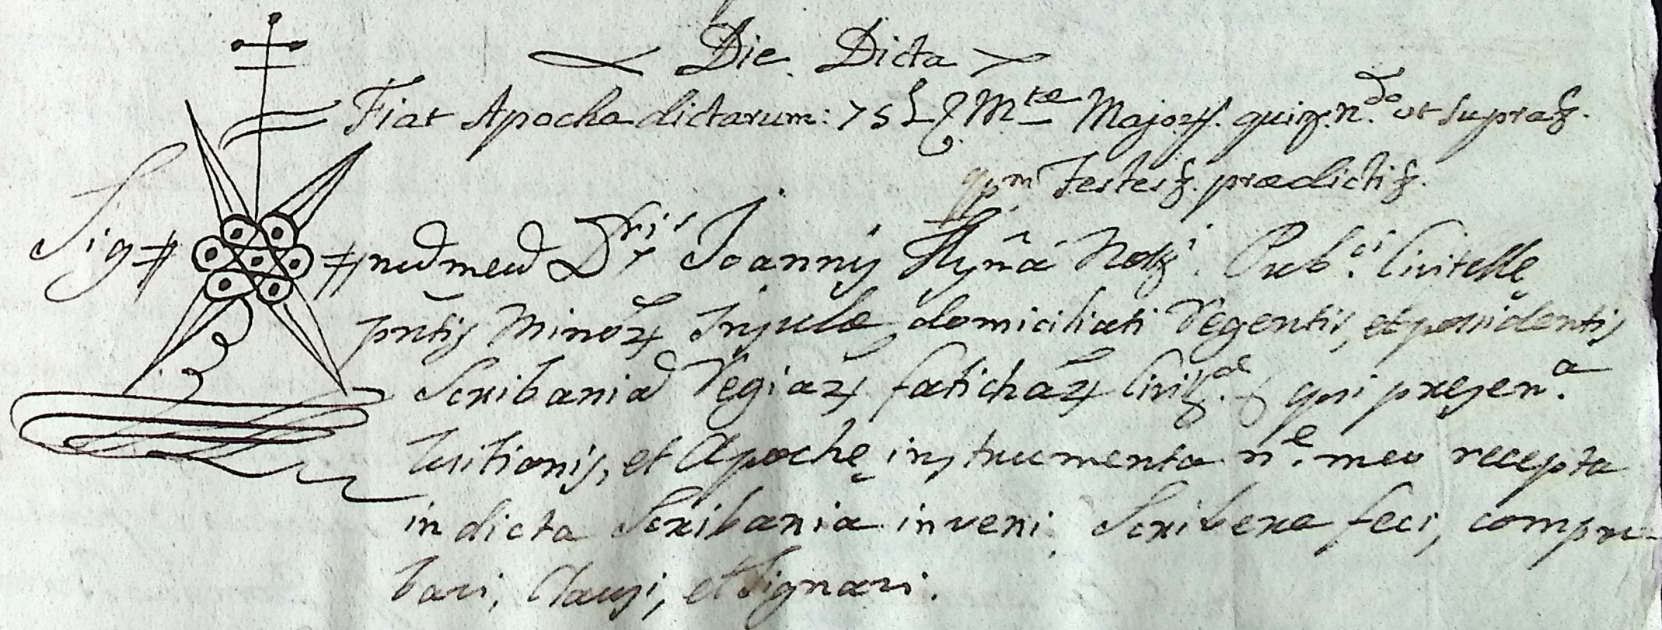 Die Dicta
Fiat Apocha dictarum: 75 L M.te Major. quiq. n.do ut supra
Testes. prædictis.
Sig# #num meum D.ris Joannis Notr.i Pub.ci Civitellę
pntis Minor. Insulæ domiciliati Regentis, et possidentis
Scribaniam Regiar. fatichar. Civit. qui presen.a
Luitionis, et Apochę instrumenta n.e meo recepta
in dicta Scribania inveni, Scribere feci, compro-
bavi, Clausi, et Signavi.